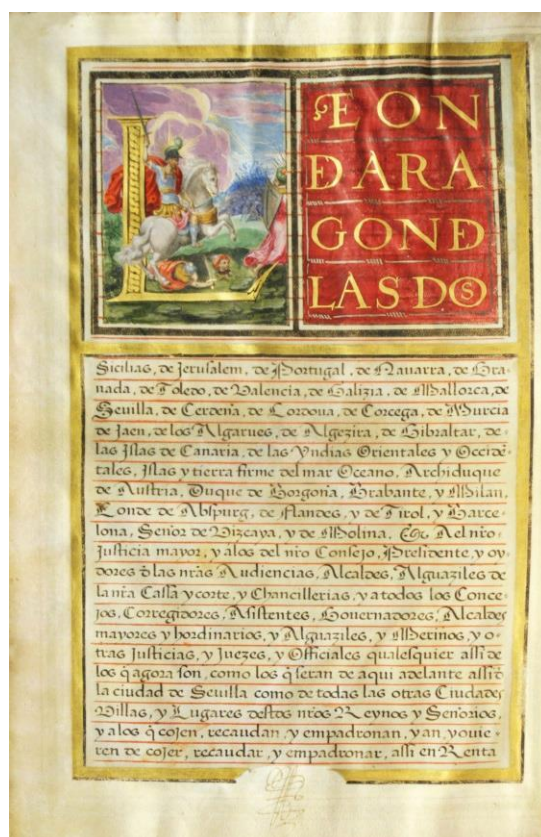 LEON
D ARA
GON D
LAS DOS
Sicilias, de Jerusalem, de Portugal, de Nauarra, de Gra-
nada, de Toledo, de Valencia, de Galizia, de Mallorca, de
Seuilla, de Cerdeña, de Cordoua, de Corcega, de Murcia
de Jaen, de los Algarues, de Algezira, de Gibraltar, de
las Jslas de Canaria, de las Yndias Orientales y Occidē
tales, Jslas y tierra firme del mar Oceano, Archiduque
de Austria, Duque de Borgoña, Brabante, y Milan,
Conde de Abspurg, de Flandes, y de Tirol, y Barce-
lona, Señor de Vizcaya, y de Molina, &c. A el nr̄o
Justicia mayor, y a los del nr̄o Consejo, Presidente, y oy-
dores đ las nr̄as Audiencias, Alcaldes, Alguaziles de
la nr̄a Cassa y corte, y Chancillerias, y a todos los Conce-
jos, Corregidores, Asistentes, Gouernadores, Alcaldes
mayores y hordinarios, y Alguaziles, y Merinos, y o-
tras Justicias, y Juezes, y Officiales qualesquier assi de
los q̄ agora son, como los q̄ seran de aqui adelante assi đ
la ciudad de Seuilla como de todas las otras Ciudades
Villas, y Lugares destos nr̄os Reynos y Señorios,
y a los q̄ cojen, recaudan y empadronan, y an, y ouie-
ren de cojer, recaudar, y empadronar, assi en Renta